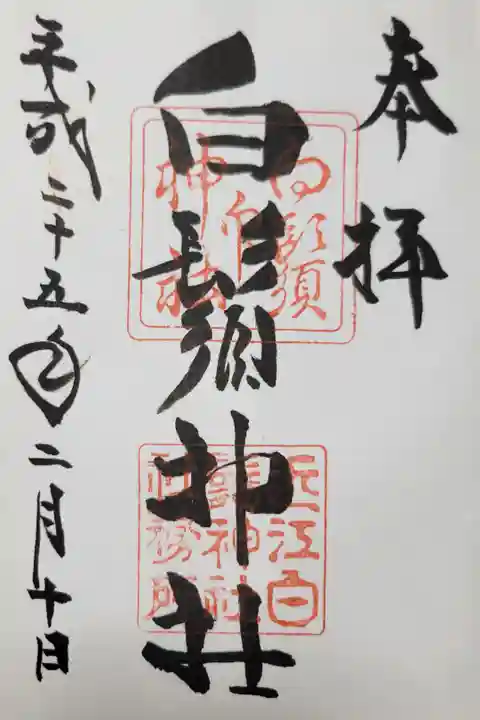 奉拝
白鬚神社
白鬚
神社
近江白
鬚神社
社務所
平成二十五年二月十日